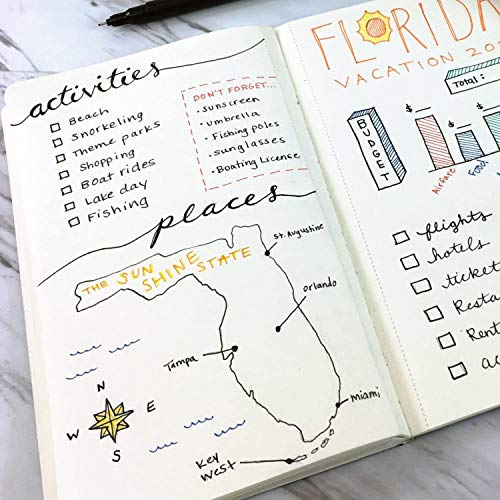 activities
Beach
Snorkeling
Theme parks
Shopping
Boat rides
Lake day
Fishing
DON'T FORGET...
• Sunscreen
• umbrella
• Fishing poles
• sunglasses
• Boating License
places
THE SUN
SHINE STATE
St. Augustine
Orlando
Tampa
miami
Key
West
N
W E
S
FLORIDA
VACATION 20
Total:
BUDGET
$
$
Airfare
Food
flights
hotels
ticket
Resta
Rent